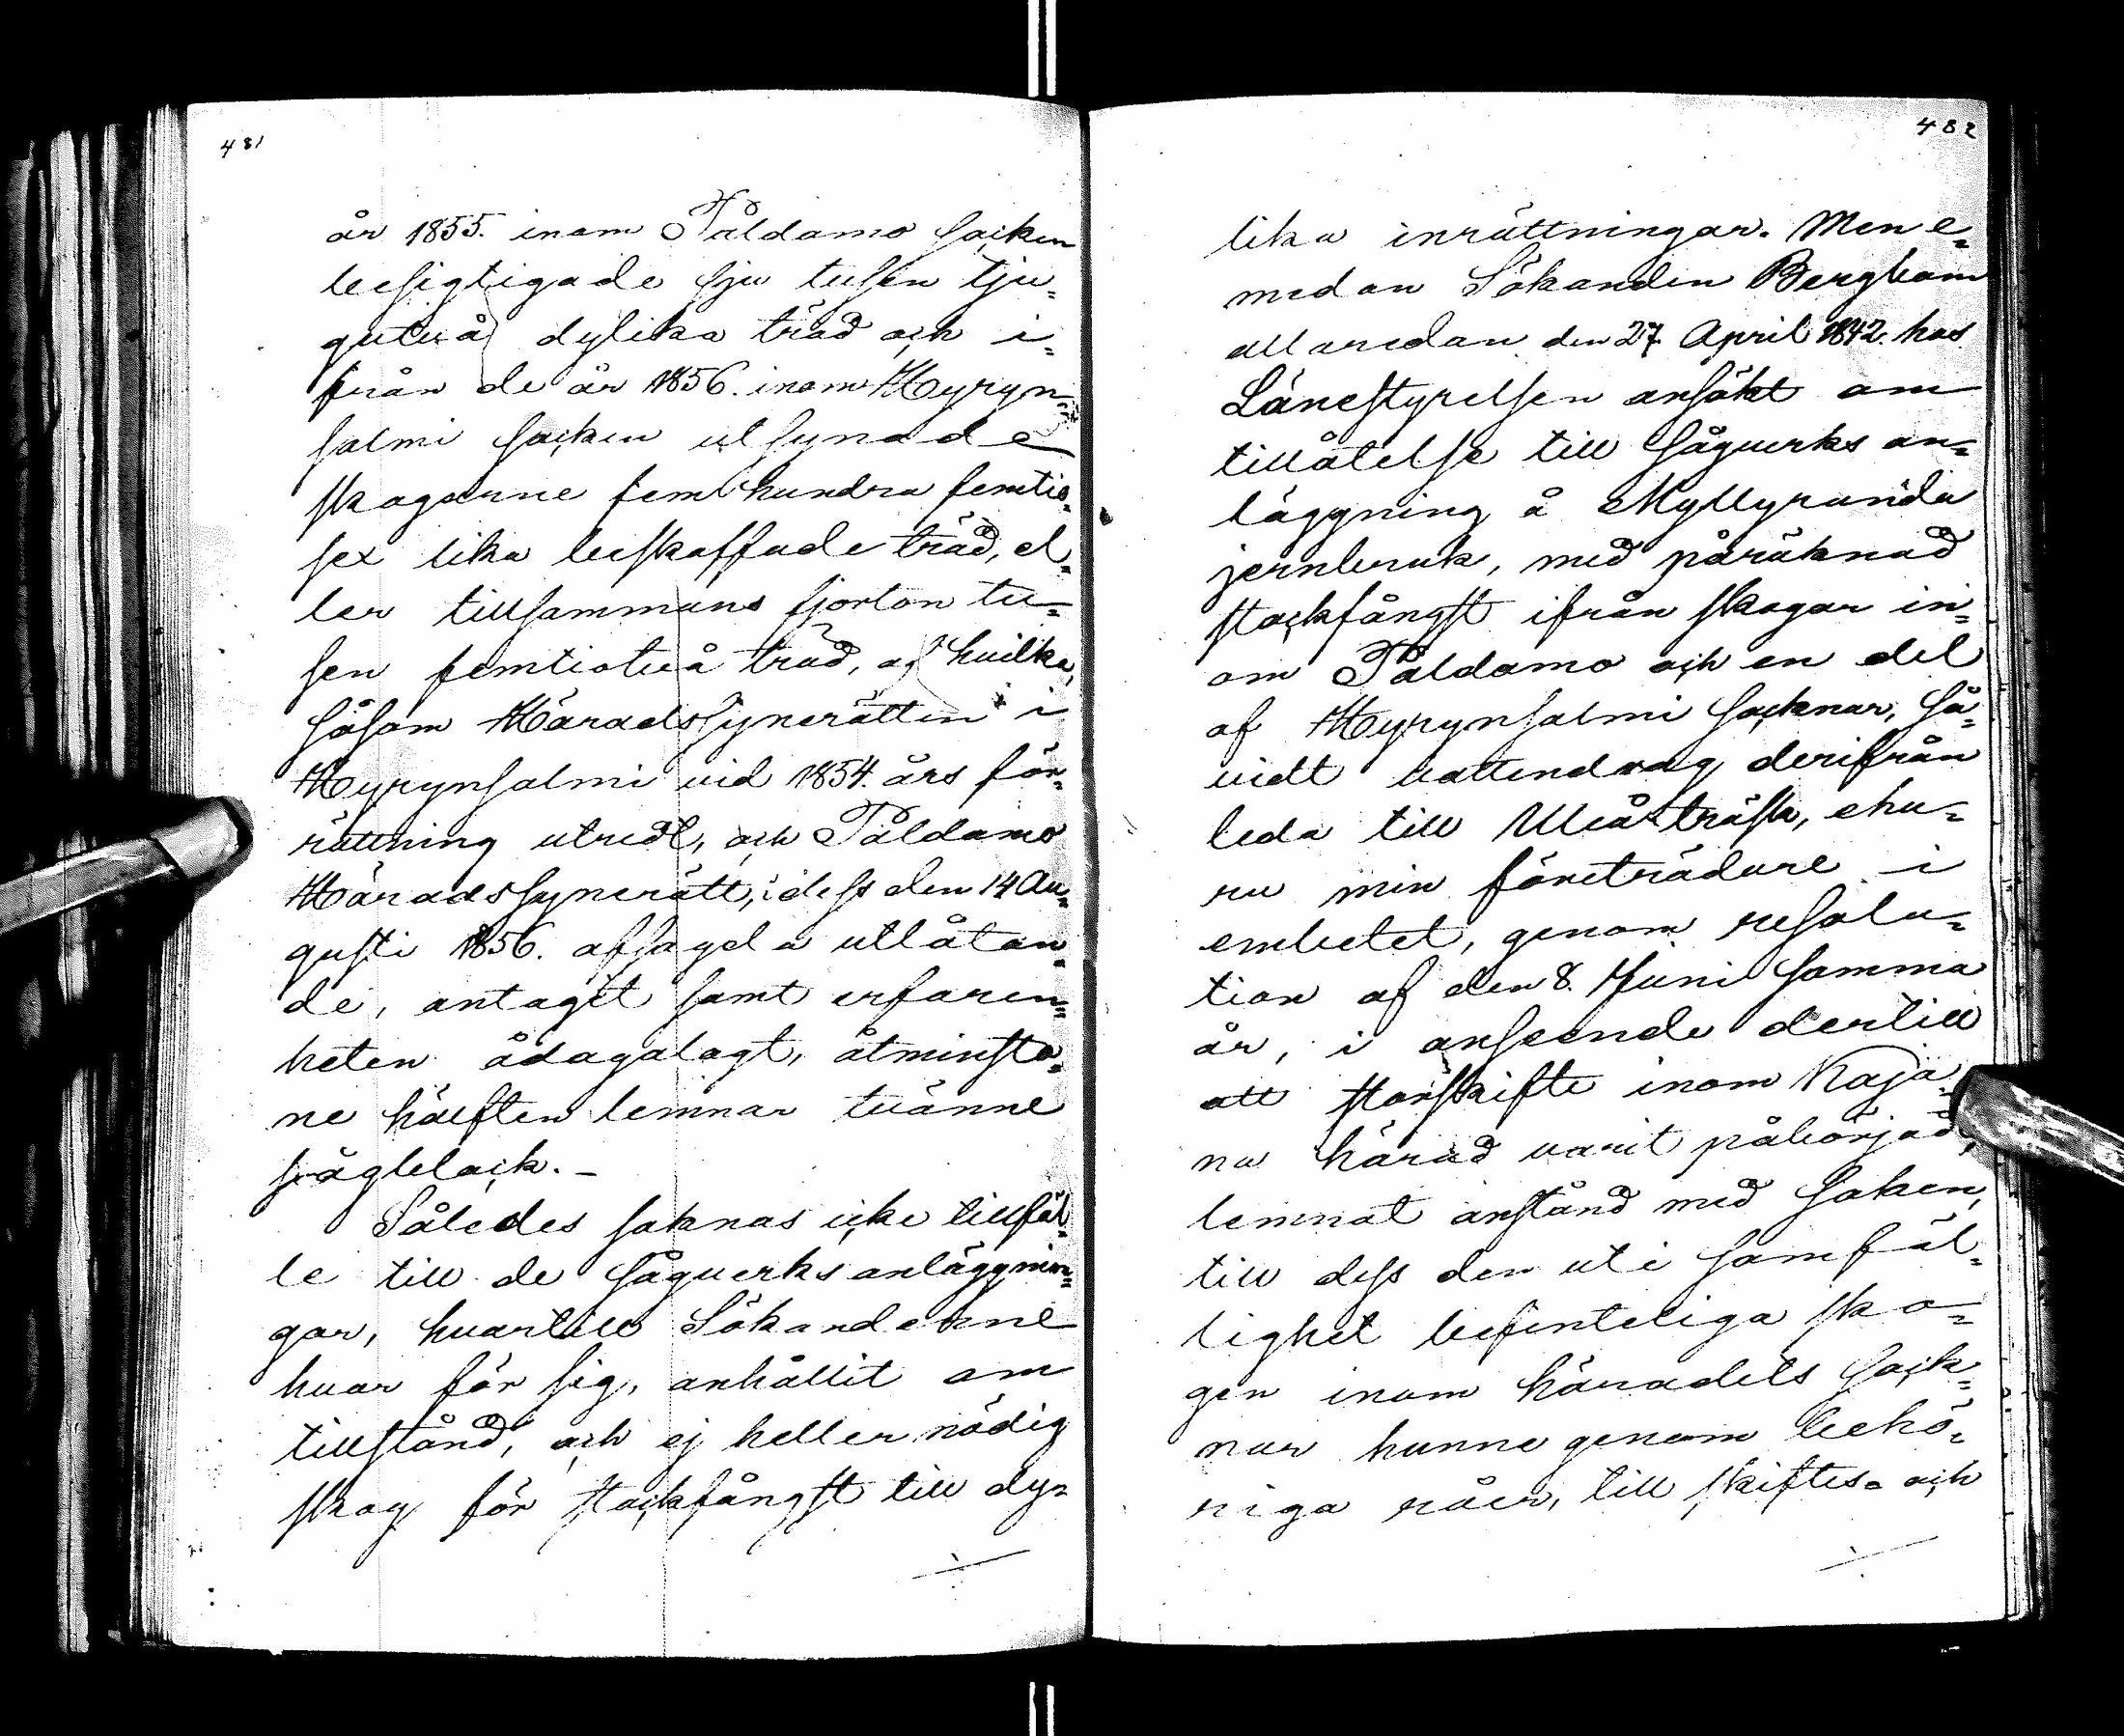 481
år 1855. inom Påldamo socken
besigtigade sju tusen tju-
gutvå dylika träd och i-
från de år 1856. inom Hyryn-
salmi socken utsynade
skogarne femhundra femtio-
sex lika beskaffade träd, el-
ler tillsammans fjorton tu-
sen femtiotvå träd, af hvilka,
såsom Häradssynerätten i
Hyrynsalmi vid 1854. års för-
rättning utredt, och Påldamo
Häradssynerätt, i dess den 14 Au-
gusti 1856. afsagda utlåtan-
de, antagit samt erfaren-
heten ådagalagt, åtminsto-
ne hälften lemnar tvänne
sågblock. -
Således saknas icke tillfäl-
le till de sågverksanläggnin-
gar, hvartill Sökanderne
hvar för sig, anhållit om
tillstånd, och ej heller nödig
skog för stockfångst till dy-
482
lika inrättningar. Men e-
medan Sökanden Bergbom
allaredan den 27 April 1842. hos
Länestyrelsen ansökt om
tillåtelse till sågverks an-
läggning å Myllyranda
jernbruk, med påräknad
stockfångst ifrån skogar in-
om Påldamo och en del
af Hyrynsalmi socknar, så-
vidt vattendrag derifrån
leda till Uleåträsk, ehu-
ru min företrädare i
embetet, genom resolu-
tion af den 8. Juni samma
år, i anseende dertill
att storskifte inom Kaja-
na härad varit påbörjad,
lemnat anstånd med saken,
till dess den uti samfäl-
lighet befinteliga sko-
gen inom häradets sock-
nar hunne genom behö-
riga råer, till skiftes- och